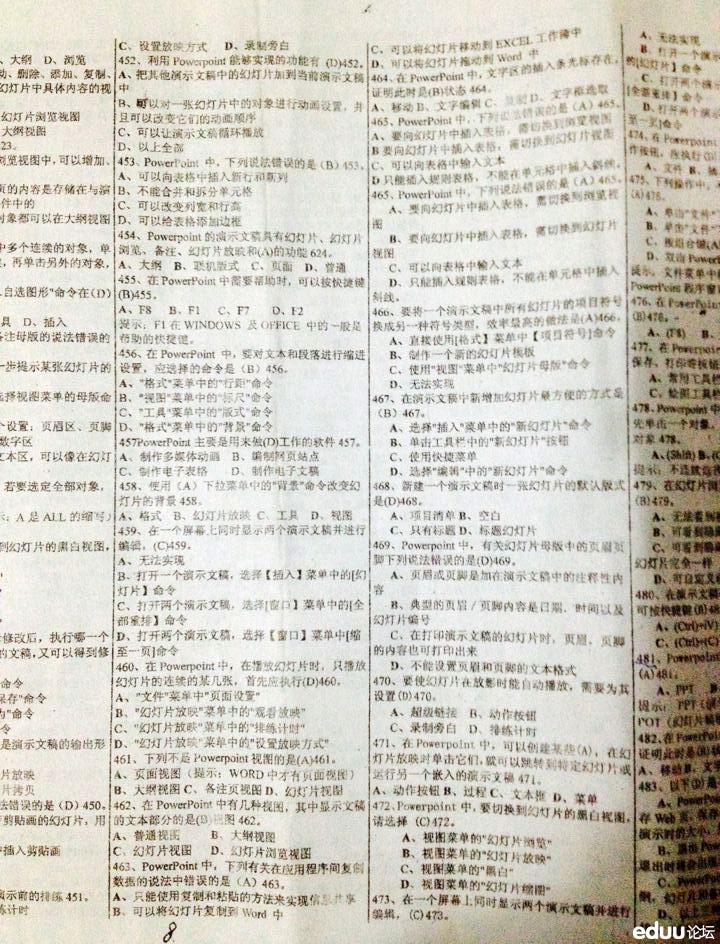 、大纲 D、浏览
动、删除、添加、复制、
幻灯片中具体内容的视
幻灯片浏览视图
大纲视图
23。
浏览视图中，可以增加、
页的内容是存储在与演
件中的
对象都可以在大纲视图
中多个连续的对象，单
，再单击另外的对象，
自选图形"命令在(D)
具 D、插入
备注母版的说法错误的
一步提示某张幻灯片的
选择视图菜单的母版命
个设置：页眉区、页脚
数字区
文本区，可以像在幻灯
若要选定全部对象，
示：A 是 ALL 的缩写）
到幻灯片的黑白视图，
修改后，执行哪一个
的文稿，又可以得到修
命令
保存"命令
"命令
是演示文稿的输出形
片放映
片拷贝
法错误的是（D）450。
剪贴画的幻灯片，用
中插入剪贴画
演示前的排练 451。
练计时
C、设置放映方式 D、录制旁白
452、利用 Powerpoint 能够实现的功能有 (D)452。
A、把其他演示文稿中的幻灯片加到当前演示文稿
中
B、可以对一张幻灯片中的对象进行动画设置，并
且可以改变它们的动画顺序
C、可以让演示文稿循环放映
D、以上全部
453、PowerPoint 中，下列说法错误的是 (B) 453。
A、可以向表格中插入新行和新列
B、不能合并和拆分单元格
C、可以改变列宽和行高
D、可以给表格添加边框
454、Powerpoint 的演示文稿具有幻灯片、幻灯片
浏览、备注、幻灯片放映和(A)的功能 624。
A、大纲 B、联机版式 C、页面 D、普通
455、在 PowerPoint 中需要帮助时，可以按快捷键
(B)455。
A、F8 B、F1 C、F7 D、F2
提示：F1 在 WINDOWS 及 OFFICE 中的一般是
帮助的快捷键。
456、在 PowerPoint 中，要对文本和段落进行缩进
设置，应选择的命令是（B）456。
A、"格式"菜单中的"行距"命令
B、"视图"菜单中的"标尺"命令
C、"工具"菜单中的"版式"命令
D、"格式"菜单中的"背景"命令
457PowerPoint 主要是用来做(D)工作的软件 457。
A、制作多媒体动画 B、编制网页站点
C、制作电子表格 D、制作电子文稿
458、使用（A）下拉菜单中的"背景"命令改变幻
灯片的背景 458。
A、格式 B、幻灯片放映 C、工具 D、视图
459、在一个屏幕上同时显示两个演示文稿并进行
编辑，(C)459。
A、无法实现
B、打开一个演示文稿，选择【插入】菜单中的[幻
灯片】命令
C、打开两个演示文稿，选择[窗口】菜单中的[全
部重排】命令
D、打开两个演示文稿，选择【窗口】菜单中[缩
至一页]命令
460、在 Powerpoint 中，在播放幻灯片时，只播放
幻灯片的连续的某几张，首先应执行(D)460。
A、"文件"菜单中"页面设置"
B、"幻灯片放映"菜单中的"观看放映"
C、"幻灯片放映"菜单中的"排练计时"
D、"幻灯片放映"菜单中的"设置放映方式"
461、下列不是 PowerPoint 视图的是(A)461。
A、页面视图（提示：WORD 中才有页面视图）
B、大纲视图 C、备注页视图 D、幻灯片视图
462、在 PowerPoint 中有几种视图，其中显示文稿
的文本部分的是(B)视图 462。
A、普通视图 B、大纲视图
C、幻灯片视图 D、幻灯片浏览视图
463、PowerPoint 中，下列有关在应用程序间复制
数据的说法中错误的是（A）463。
A、只能使用复制和粘贴的方法来实现信息共享
B、可以将幻灯片复制到 Word 中
C、可以将幻灯片移动到 EXCEL 工作簿中
D、可以将幻灯片拖动到 Word 中
464、在 PowerPoint 中，文字区的插入条光标存在，
证明此时是(B)状态 464。
A、移动 B、文字编辑 C、复制 D、文字框选取
465、PowerPoint 中，下列说法错误的是（A）465。
A、要向幻灯片中插入表格，需切换到浏览视图
B 要向幻灯片中插入表格，需切换到幻灯片视图
C、可以向表格中输入文本
D 只能插入规则表格，不能在单元格中插入斜线。
465、PowerPoint 中，下列说法错误的是（A）465。
A、要向幻灯片中插入表格，需切换到浏览视
图
B、要向幻灯片中插入表格，需切换到幻灯片
视图
C、可以向表格中输入文本
D、只能插入规则表格，不能在单元格中插入
斜线。
466、要将一个演示文稿中所有幻灯片的项目符号
换成另一种符号类型，效率最高的做法是(A)466。
A、直接使用[格式】菜单中【项目符号]命令
B、制作一个新的幻灯片模板
C、使用"视图"菜单中"幻灯片母版"命令
D、无法实现
467、在演示文稿中新增加幻灯片最方便的方式是
（B）467。
A、选择"插入"菜单中的"新幻灯片"命令
B、单击工具栏中的"新幻灯片"按钮
C、使用快捷菜单
D、选择"编辑"中的"新幻灯片"命令
468、新建一个演示文稿时一张幻灯片的默认版式
是(D)468。
A、项目清单 B、空白
C、只有标题 D、标题幻灯片
469、Powerpoint 中，有关幻灯片母版中的页眉页
脚下列说法错误的是(D)469。
A、页眉或页脚是加在演示文稿中的注释性内
容
B、典型的页眉／页脚内容是日期、时间以及
幻灯片编号
C、在打印演示文稿的幻灯片时，页眉、页脚
的内容也可打印出来
D、不能设置页眉和页脚的文本格式
470、要使幻灯片在放影时能自动播放，需要为其
设置(D)470。
A、超级链接 B、动作按钮
C、录制旁白 D、排练计时
471、在 PowerPoint 中，可以创建某些(A)，在幻
灯片放映时单击它们，就可以跳转到特定幻灯片或
运行另一个嵌入的演示文稿 471。
A、动作按钮 B、过程 C、文本框 D、菜单
472、Powerpoint 中，要切换到幻灯片的黑白视图，
请选择 (C)472。
A、视图菜单的"幻灯片浏览"
B、视图菜单的"幻灯片放映"
C、视图菜单的"黑白"
D、视图菜单的"幻灯片缩图"
473、在一个屏幕上同时显示两个演示文稿并进行
编辑，(C)473。
A、无法实现
B、打开一个演示
的[幻灯片】命令
C、打开两个演
[全部重排】命令
D、打开两个演示
至一页]命令
474、在 Powerpoint
作按钮，应执行(D)
A、文件 B、
475、下列操作中，
(A)478。
A、单击"文件"
B、单击"文件"
C、按组合键(A
D、双击 PowerP
提示，文件菜单中
PowerPoint 程序窗
476、在 PowerPoint
(B)478。
A、(F8) B、
477、在 Powerpoint
保存、打印等按钮
A、常用工具栏
C、绘图工具栏
478、Powerpoint 中
先单击一个对象，
对象 478。
A、(Shift) B、(C
提示：不连续选
479、在幻灯片浏
(B)479。
A、无法看到
B、可看到
C、可看到
幻灯片完全一样
D、可自定义
480、在演示文稿
可按快捷键(B)48
A、(Ctrl)+(V)
C、(Ctrl)+(C)
481、Powerpoint
(A)481。
A、PPT B、
提示：PPT (演
POT (幻灯片模
482、在 PowerP
证明此时是(B)
A、移动 B、文
483、以下(D)是
A、PowerPo
存 Web 页、保存
演示时的大小，
B、
退出时将会出
C、
纲、幻灯片和备
D、以上三
8
eduu论坛